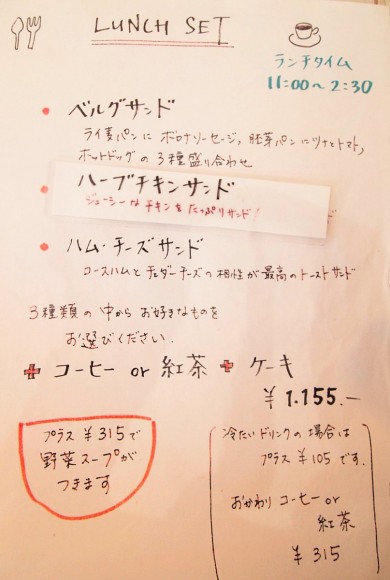 LUNCH SET
ランチタイム
11:00〜2:30
ベルグサンド
ライ麦パンに ボロナソーセージ, 胚芽パンにツナとトマト,
ホットドッグの3種盛り合わせ
ハーブチキンサンド
ジューシーなチキンをたっぷりサンド!
ハム・チーズサンド
ロースハムとチェダーチーズの相性が最高のトーストサンド
3種類の中からお好きなものを
お選びください.
+ コーヒー or 紅茶 + ケーキ
¥1.155.—
プラス ¥315で
野菜スープが
つきます
冷たいドリンクの場合は
プラス ¥105です.
おかわり コーヒー or
紅茶
¥315